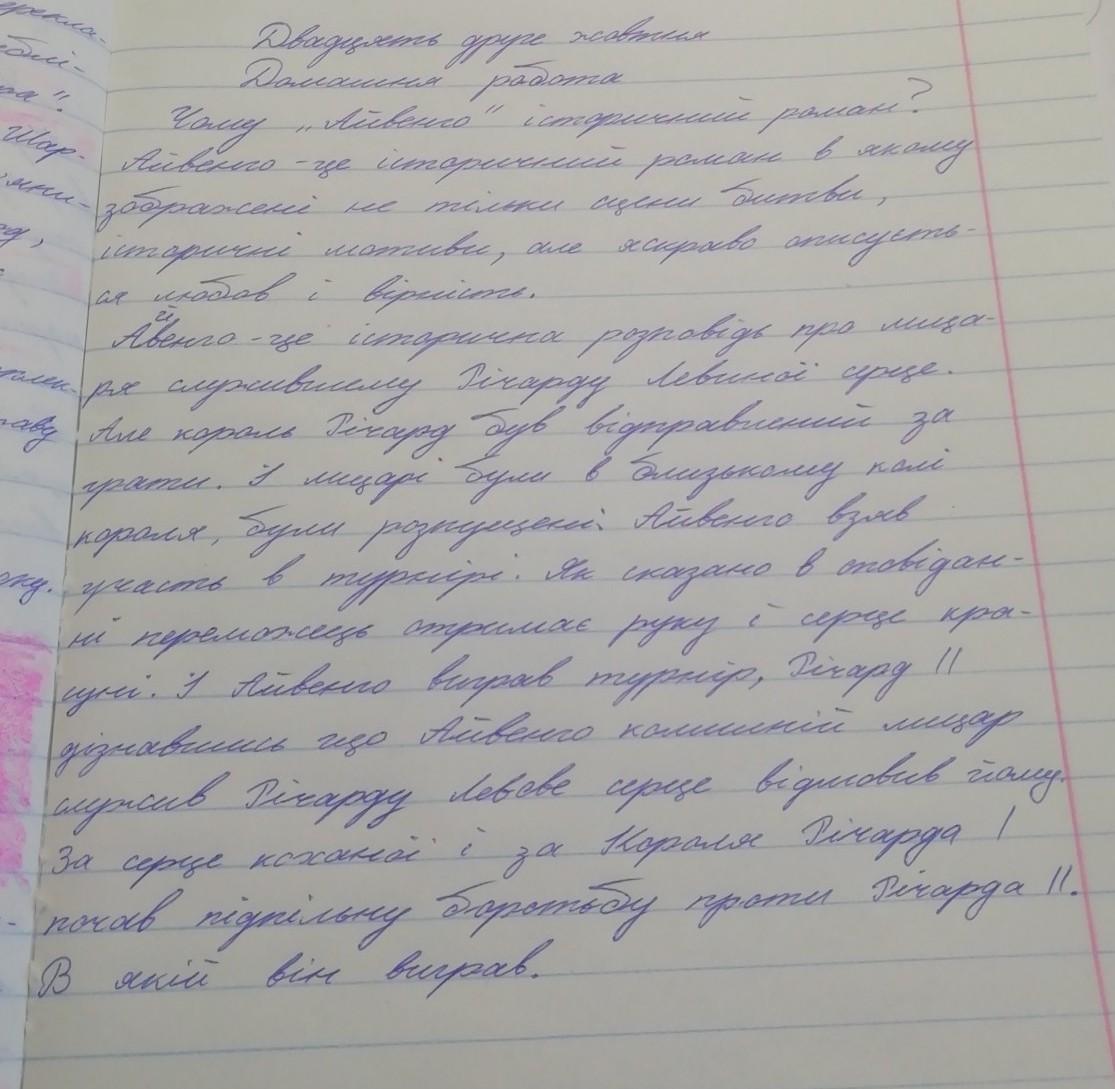 Двадцять друге жовтня
Домашня робота
Чому „Айвенго" історичний роман?
Айвенго - це історичний роман в якому
зображені не тільки сцени битви,
історичні мотиви, але яскраво описуєть-
ся любов і вірність.
Айвенго - це історична розповідь про лица-
ря служившему Річарду Левиної серце.
Але король Річард був відправлений за
грати. І лицарі були в близькому колі
короля, були розпущені. Айвенго взяв
участь в турнірі. Як сказано в оповідан-
ні переможець отримає руку і серце кра-
суні. І Айвенго виграв турнір, Річард II
дізнавшись що Айвенго колишній лицар
служив Річарду Левове серце відмовив йому.
За серце коханої і за Короля Річарда I
почав підпільну боротьбу проти Річарда II.
В якій він виграв.